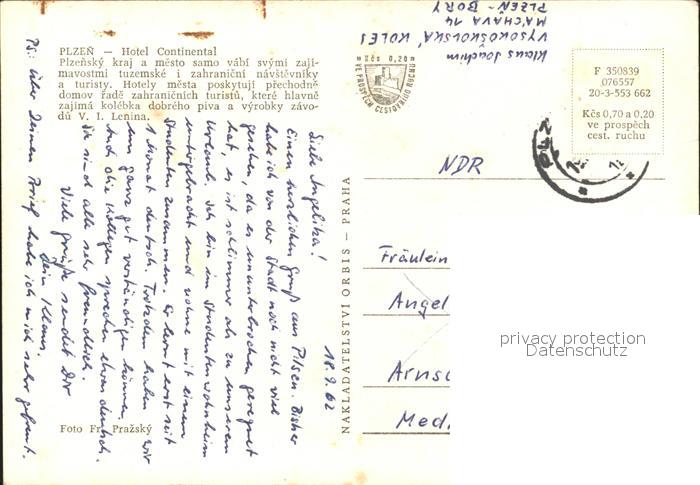 PLZEŇ — Hotel Continental
Plzeňský kraj a město samo vábí svými zají-
mavostmi tuzemské i zahraniční návštěvníky
a turisty. Hotely města poskytují přechodně
domov řadě zahraničních turistů, které hlavně
zajímá kolébka dobrého piva a výrobky závo-
dů V. I. Lenina.
Klaus Joachim
VYSOKOŠKOLSKÁ KOLEJ
MÁCHAVA 14
PLZEŇ - BORY
Kčs 0,20
VE PROSPĚCH CESTOVNÍHO RUCHU
F 350839
076557
20-3-553 662
Kčs 0,70 a 0,20
ve prospěch
cest. ruchu
NDR
18.9.62
Liebe Angelika!
Einen herzlichen Gruß aus Pilsen. Bisher
habe ich von der Stadt noch nicht viel
gesehen, da es ununterbrochen geregnet
hat, es ist schlimmer als in unserem
Urlaub. Ich bin im Studentenwohnheim
untergebracht und wohne mit einem
Studenten zusammen. Er lernt erst seit
1 Monat deutsch. Trotzdem haben wir
uns ganz gut verständigen können.
Auch die Kollegen sprechen etwas deutsch.
Sie sind alle sehr freundlich.
Viele Grüße sendet Dir
Dein Klaus.
PS: Über Deinen Brief habe ich mich sehr gefreut.
NAKLADATELSTVÍ ORBIS — PRAHA
Foto Fr. Pražský
Fräulein
Angel
Arnsd
Med.
privacy protection
Datenschutz